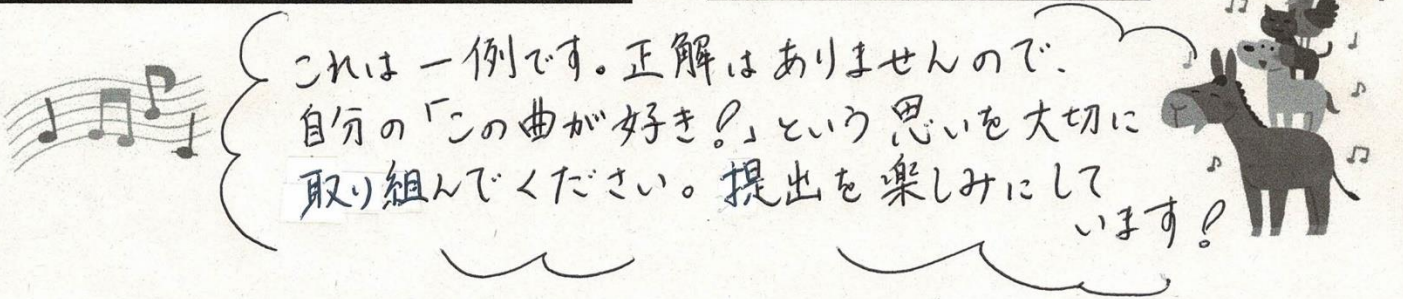 これは一例です。正解はありませんので、
自分の「この曲が好き！」という思いを大切に
取り組んでください。提出を楽しみにして
います！